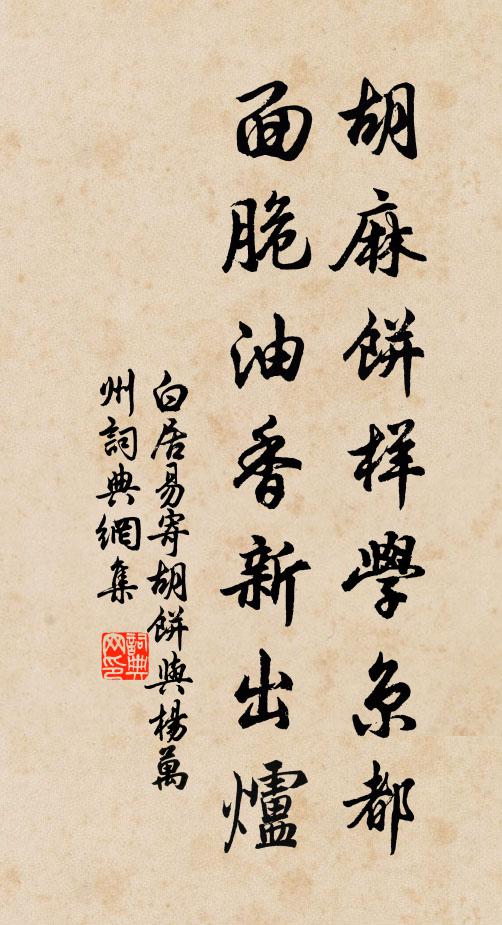 胡麻餅样學京都
面脆油香新出爐
白居易寄胡餅與楊萬
州詞典網集
詞典网印